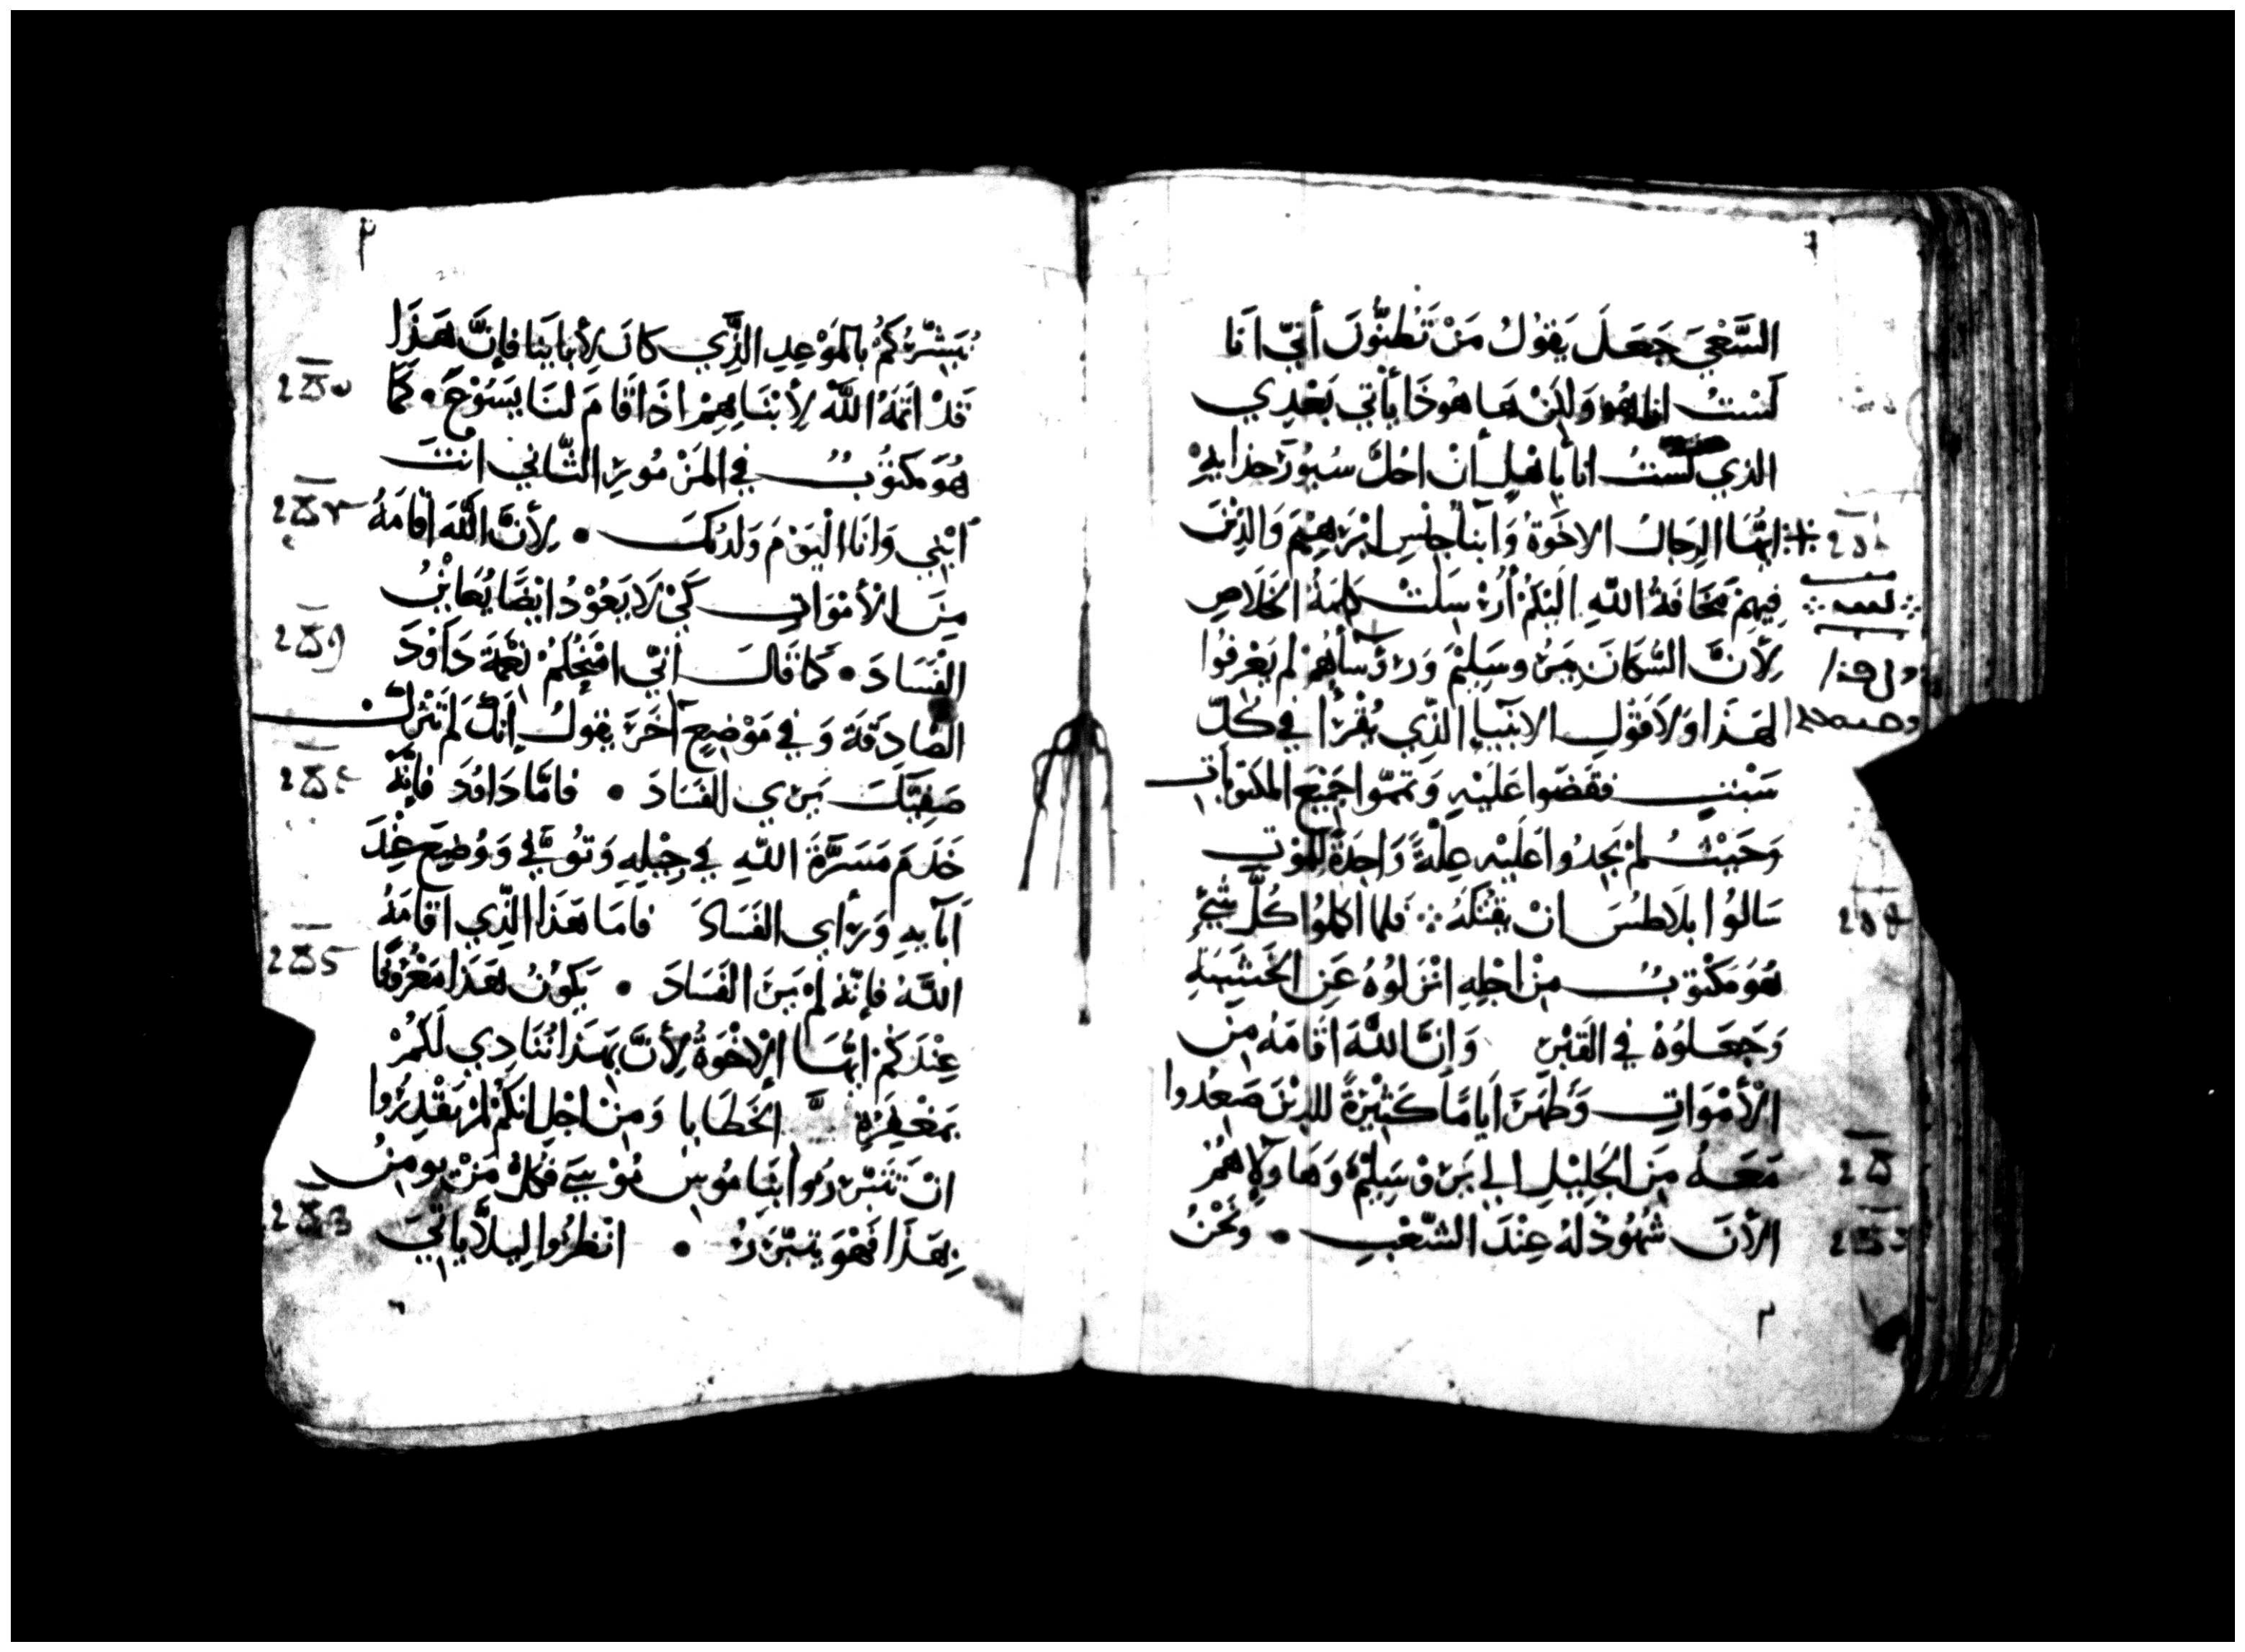 السَّعْيَ جَعَلَ يَقُوْلُ مَنْ تَظُنُّوْنَ أَنِّي اَنَا
لَسْتُ انا هو وَلَكِنْ هَا هُوَذَا يَأْتي بَعْدِي
الذي لَسْتُ انا بِاهْلٍ أَنْ احُلَّ سُيُورَ حذايهِ
ايُّهَا الرِجَالُ الاخَوةُ وَابْنَا جِنْسِ ابْرَهِيْمَ وَالذِيْنَ
فِيهِمْ مَخَافَةُ اللهِ الَيْكُمْ أُرْسِلَتْ كَلِمَةُ الخَلَاصِ
لِأَنَّ السُّكَانَ بِيَرُوسَلِيْمَ وَرُؤَسَاهُمْ لم يَعْرِفُوا
لهَذَا وَلَا قَوْلِ الانبِيَاءِ الذِّي يُقْرَأُ في كُلِّ
سَبْتٍ فقَضَوا عَلَيْهِ وَتَمَّمُوا جَمِيْعَ المكتوبَاتِ
وَحَيْثُ لمْ يَجِدُوا عَلَيْهِ عِلَّةً وَاحِدَةً لِلمَوْتِ
سَالُوا بلَاطُسَ انْ يقْتُلَهُ ⁘ فَلما اكلموا كُلَّ شَيْءٍ
هُوَ مَكْتوبٌ مِنْ اجْلِهِ انْزلوُهُ عَنِ الخَشَبَةِ
وَجَعَلوُهُ في القَبْرِ وَانَّ اللَّهَ اقَامَهُ مِنَ
الْأَمْوَاتِ وَظَهَرَ اَيَامًا كَثِيْرَةً للذِيْنَ صَعِدُوا
مَعَهُ مِنَ الجَلِيْلِ الي يَرُوسَلِيْمَ وَهَاوُلَاهُمُ
الأَنَ شُهُوْدٌ لهُ عِنْدَ الشَّعْبِ • وَنَحْنُ
نُبَشِّرُكُمْ بالمَوْعِدِ الذِّي كَانَ لِأَبَايِنَا فإِنَّ هَذَا
قَدْ اتَمَّهُ اللَّهُ لِأَبْنَايِهِمْ اذَ اقَامَ لَنَا يَسُوْعَ • كَمَا
هُوَ مَكتوُبٌ في المَزْمُورِ الثَّاني انْتَ
ابْنِي وَانَا الْيَوْمَ وَلدتُكَ • لِأَنَّ اللَّهَ اقَامَهُ
مِنَ الْأَمْوَاتِ كَيْ لَا يَعُوْدُ ايْضًا يُعَايِنُ
الفَسَادَ • كَمَا قَالَ انِّي امْنَحُكُمْ نِعْمَةَ دَاوُدَ
الصَّادِقَة وَفي مَوْضِعٍ آخَرَ يقولُ إِنَّكَ لَمْ تَتْرُكْ
صَفِيَّكَ يَرَي الفَسَادَ • فامَّا دَاوُدَ فإِنَّهُ
خَدَمَ مَسَرَّةَ اللَّهِ في جِيْلِهِ وَتُوُفيَ وَوُضِعَ عِنْدَ
آبَايهِ وَرَأَي الفَسَادَ فامَا هَذَا الذِّي اقامَهُ
اللَّهُ فإِنَّهُ لمْ يَرَ الفَسَادَ • يَكُوْنُ هَذَا مَعْرُوفًا
عِنْدَكُمْ ايُّهَا الْاخْوَةُ لِأَنَّ بِهَذَا نُنَادِي لَكُمْ
بمَغْفِرَةِ الخَطَايا وَمِنْ اجْلِ انَّكُمْ لَمْ تَقْدِرُوا
انْ تَتَبَرَرُوا بنَامُوسِ مُوْسَي فَكُلُّ مَنْ يومِنُ
بِهَذَا فَهْوَ يَتَبَرَرُ • انْظرُوا لِيلَّا يَاتِيَ